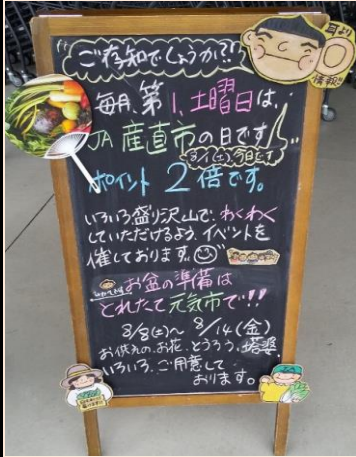 ご存知でしょうか??
耳より
情報!!
毎月、第1、土曜日は、
JA産直市の日です
8/1(土)今日です
ポイント2倍です。
いろいろ盛り沢山で、わくわく
していただけるよう、イベントを
催しております。
お盆の準備は
とれたて元気市で!!
8/8(土)～8/14(金)
お供えのお花、とうろう、塔婆、
いろいろ、ご用意して
おります。